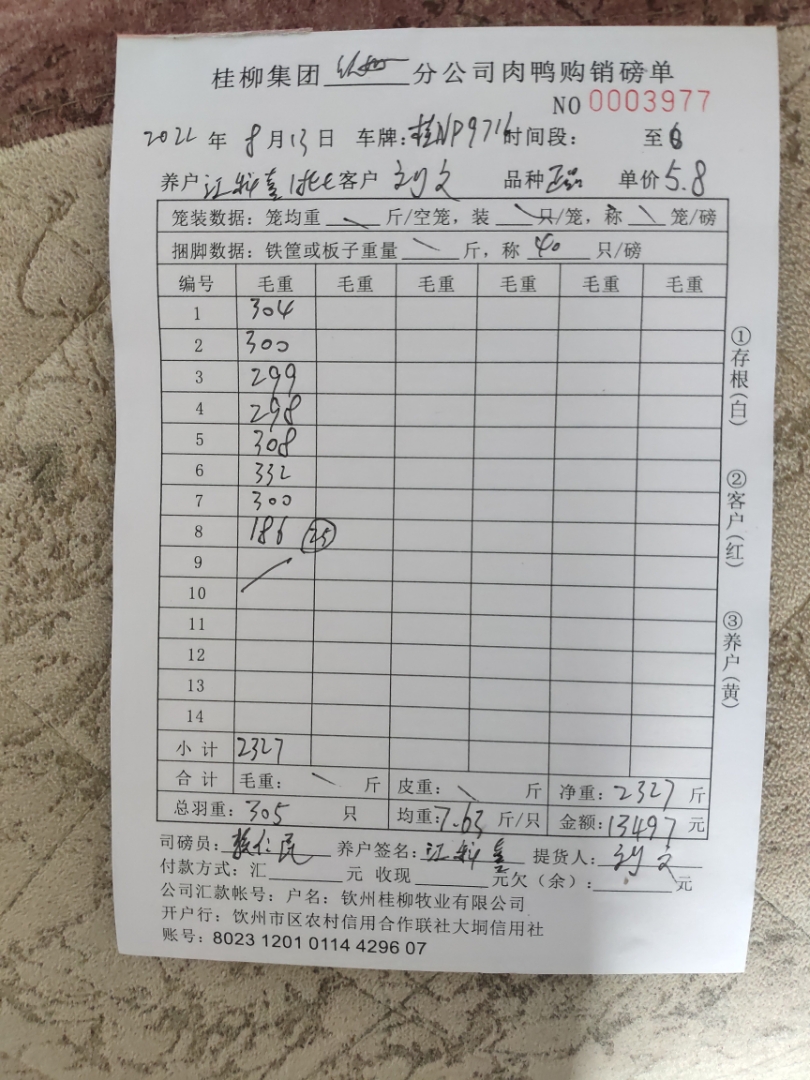 桂柳集团 钦州 分公司肉鸭购销磅单
NO 0003977
2022 年 8 月 13 日 车牌:桂NP9716 时间段: 至
养户 江 客户 刘文 品种 正品 单价 5.8
笼装数据:笼均重 \ 斤/空笼,装 \ 只/笼,称 \ 笼/磅
捆脚数据:铁筐或板子重量 \ 斤,称 40 只/磅
编号 毛重 毛重 毛重 毛重 毛重 毛重
1 304
2 300
3 299
4 298
5 308
6 332
7 300
8 186 25
9
10
11
12
13
14
小计 2327
合计 毛重: \ 斤 皮重: \ 斤 净重: 2327 斤
总羽重: 305 只 均重: 7.63 斤/只 金额: 13497 元
司磅员: 养户签名: 江 提货人: 刘文
付款方式:汇 元 收现 元欠(余): 元
公司汇款帐号:户名:钦州桂柳牧业有限公司
开户行:钦州市区农村信用合作联社大垌信用社
账号:8023 1201 0114 4296 07
①存根(白)
②客户(红)
③养户(黄)